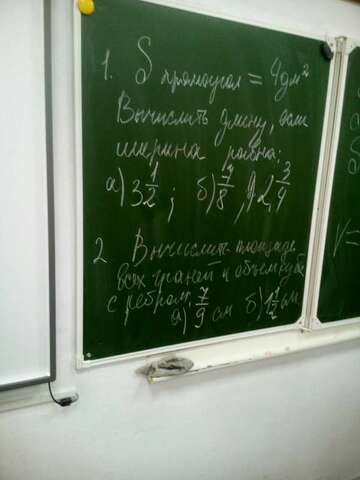 1. S прямоугол = 4 дм²
Вычислить длину, если
ширина равна:
а) 3 1/2 ; б) 7/8 , в) 2 3/4
2 Вычислить площадь
всех граней и объем куба
с ребром
а) 7/9 см б) 1 1/2 см